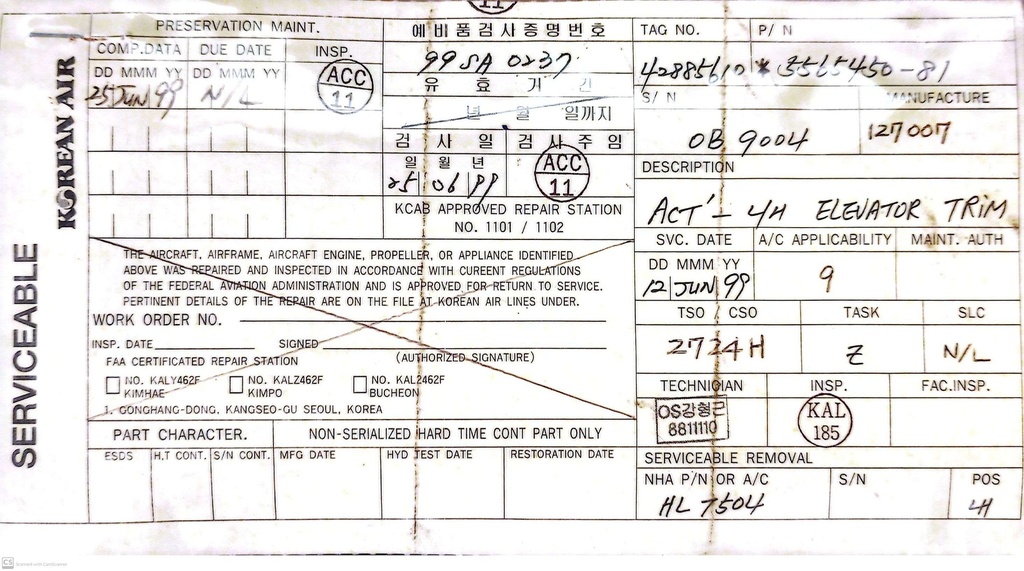 11
PRESERVATION MAINT.
COMP.DATA DUE DATE INSP.
DD MMM YY DD MMM YY
25 JUN 99 N/L
ACC
11
예비품검사증명번호
99 SA 0237
유 효 기 간
년 월 일까지
검 사 일 검 사 주 임
일 월 년
25 06 99
ACC
11
KCAB APPROVED REPAIR STATION
NO. 1101 / 1102
TAG NO. P/N
42885610 * 3565450-81
S/N MANUFACTURE
OB 9004 127007
DESCRIPTION
ACT' - L/H ELEVATOR TRIM
SVC. DATE A/C APPLICABILITY MAINT. AUTH
DD MMM YY
12 JUN 99 9
TSO / CSO TASK SLC
2724H Z N/L
TECHNICIAN INSP. FAC.INSP.
OS강형근
8811110
KAL
185
SERVICEABLE REMOVAL
NHA P/N OR A/C S/N POS
HL 7504 LH
KOREAN AIR
SERVICEABLE
THE AIRCRAFT, AIRFRAME, AIRCRAFT ENGINE, PROPELLER, OR APPLIANCE IDENTIFIED
ABOVE WAS REPAIRED AND INSPECTED IN ACCORDANCE WITH CUREENT REGULATIONS
OF THE FEDERAL AVIATION ADMINISTRATION AND IS APPROVED FOR RETURN TO SERVICE.
PERTINENT DETAILS OF THE REPAIR ARE ON THE FILE AT KOREAN AIR LINES UNDER.
WORK ORDER NO.
INSP. DATE SIGNED
FAA CERTIFICATED REPAIR STATION (AUTHORIZED SIGNATURE)
NO. KALY462F NO. KALZ462F NO. KAL2462F
KIMHAE KIMPO BUCHEON
1, GONGHANG-DONG, KANGSEO-GU SEOUL, KOREA
PART CHARACTER. NON-SERIALIZED HARD TIME CONT PART ONLY
ESDS H.T CONT. S/N CONT. MFG DATE HYD TEST DATE RESTORATION DATE
CS Scanned with CamScanner